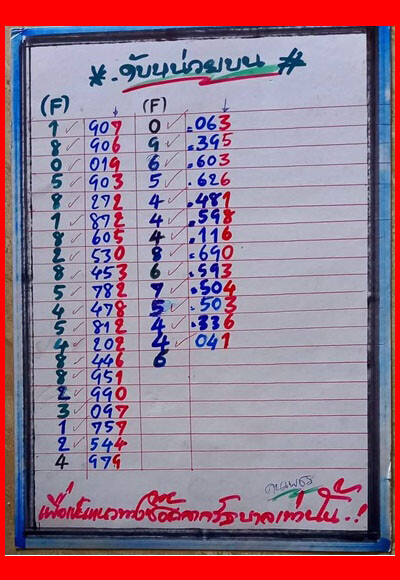 *.ดับหน่วยบน #
(F) (F)
1 ✓ 907 0 ✓ .063
8 ✓ 906 9 ✓ .395
0 ✓ 019 6 ✓ .603
5 ✓ 903 5 ✓ .626
8 ✓ 272 4 ✓ .481
1 ✓ 872 4 ✓ .598
8 ✓ 605 4 ✓ .116
2 ✓ 530 8 ✓ .690
8 ✓ 453 6 ✓ .593
5 ✓ 782 7 ✓ .504
4 ✓ 478 5 ✓ .503
5 ✓ 812 4 ✓ .336
4 ✓ 202 4 ✓ 041
8 ✓ 446 6
8 ✓ 951
2 ✓ 990
3 ✓ 097
1 ✓ 757
2 ✓ 544
4 979
คนเพชร
เพื่อเป็นแนวทางซื้อสลากรัฐบาลเท่านั้น.!